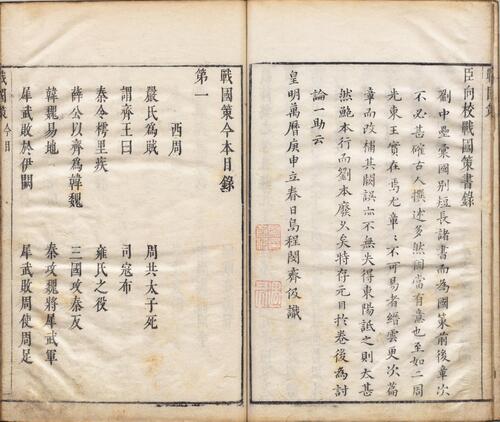 戰國策
臣向校戰國策書錄
劉中壘彙國別短長諸書而為國策前後章次
不必甚確古人撰述多然間當有意也至如二周
先東王實在焉尤章章不可易者縉雲更次篇
章而改補其闕誤亦不無失得東陽詆之則太甚
然鮑本行而劉本廢久矣特存元目於卷後為討
論一助云
皇明萬曆庚申立春日烏程閔齊伋識
戰國策今本目錄
第一
西周
嚴氏為賊 周共太子死
謂齊王曰 司寇布
秦令樗里疾 雍氏之役
薛公以齊為韓魏 三國攻秦反
韓魏易地 秦攻魏將犀武軍
犀武敗於伊闕 犀武敗周使周足
戰國策 今目